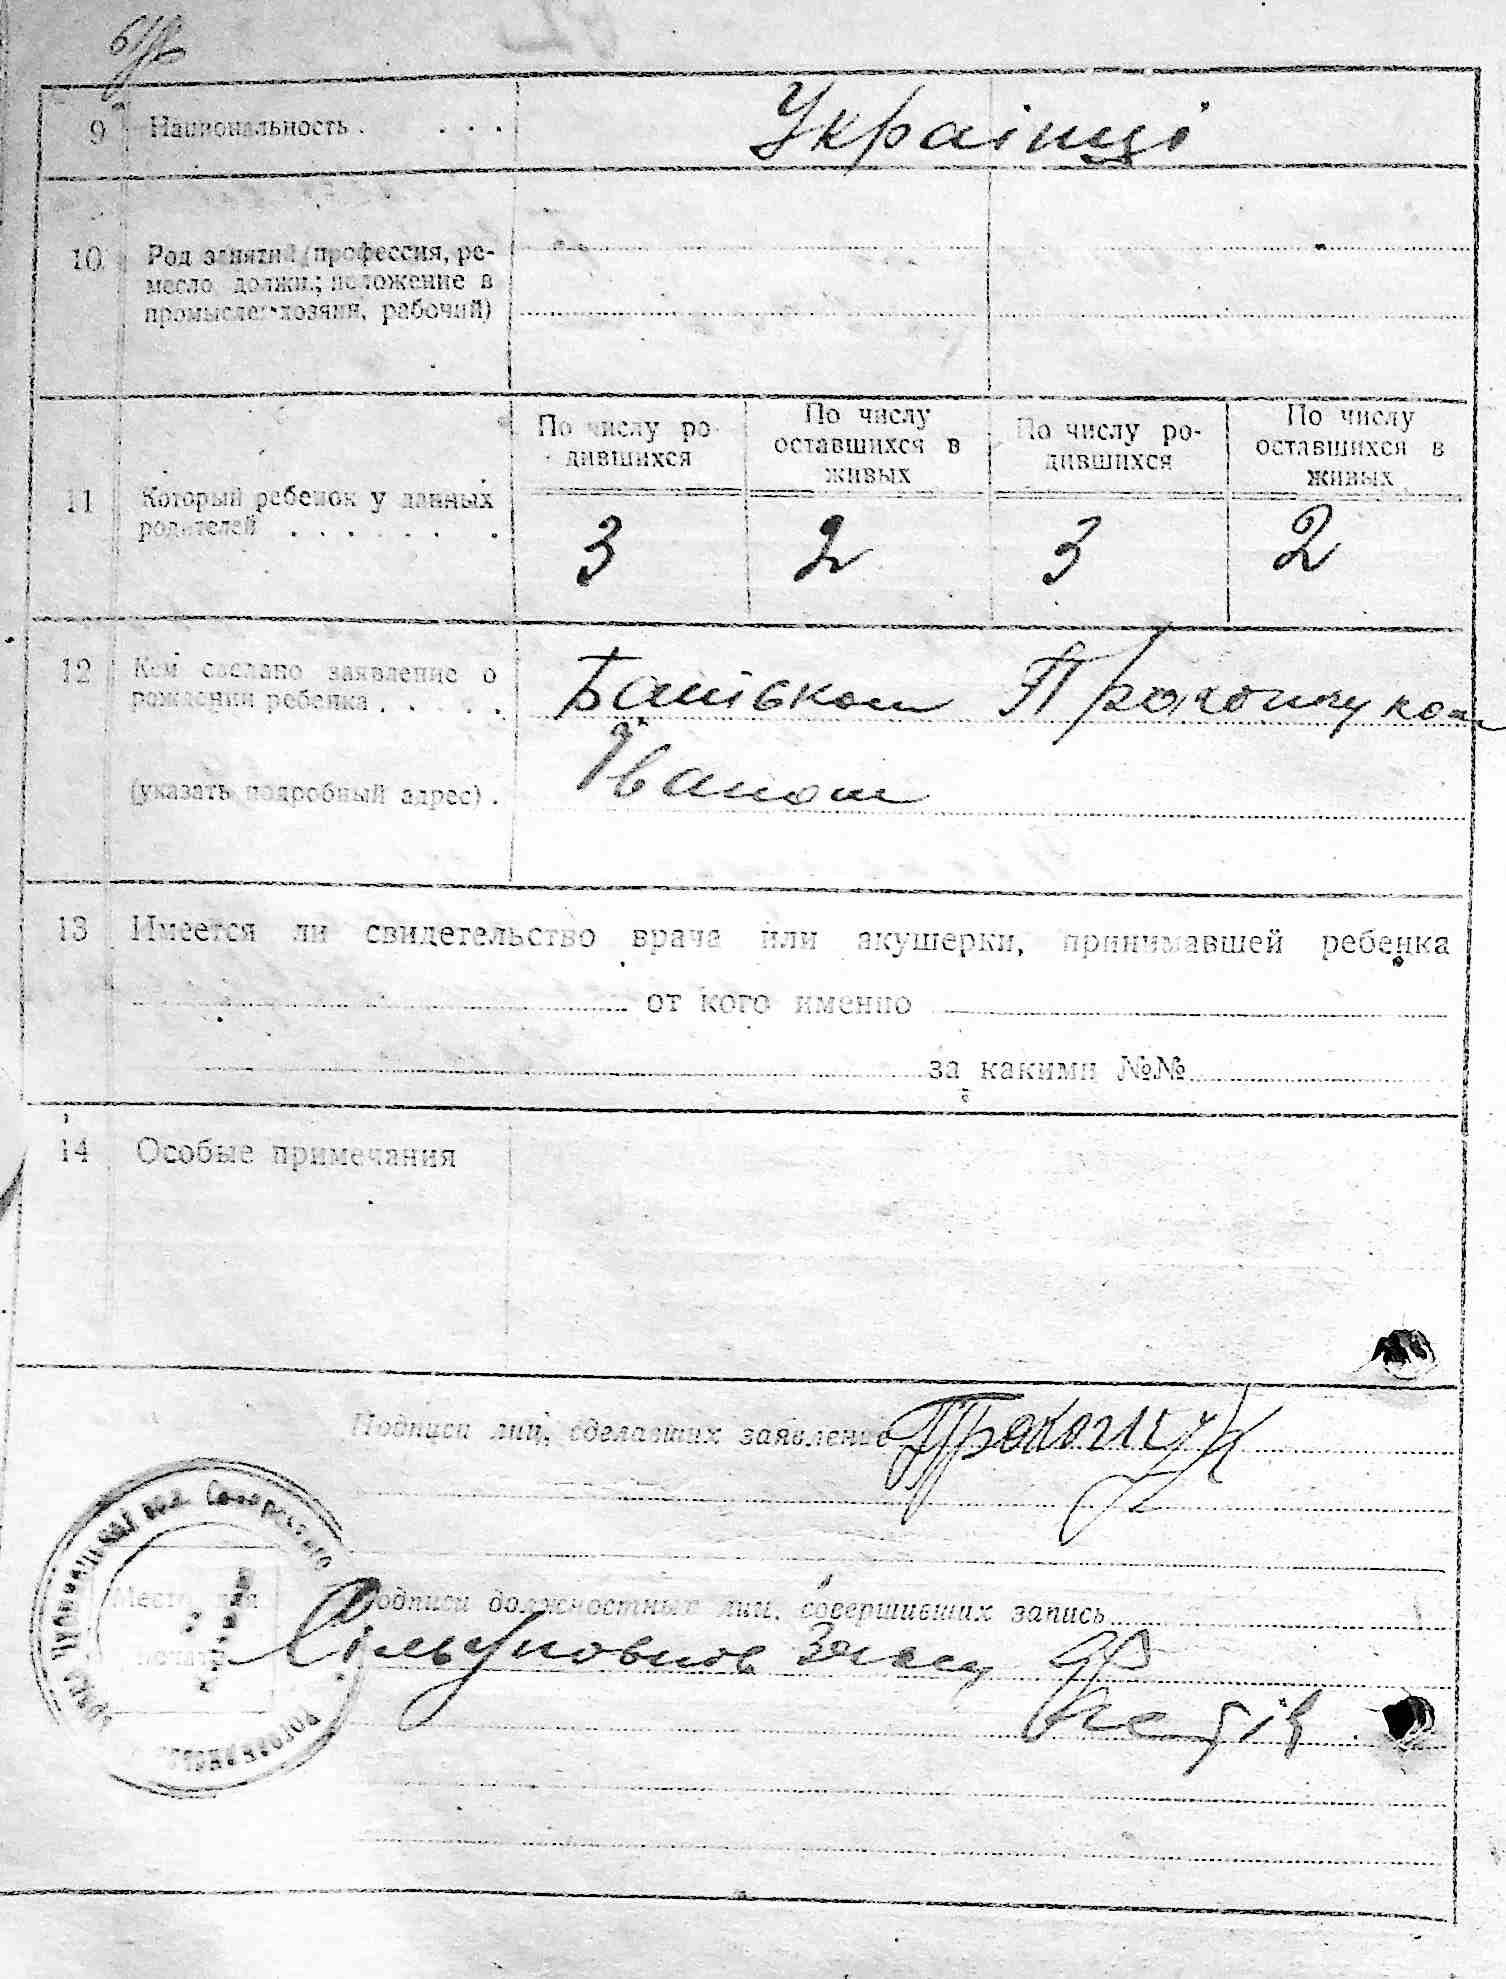 9 Национальность . . . . Українці
10 Род занятий (профессия, ре-
месло, должн.; положение в
промысле: хозяин, рабочий)
По числу ро-
дившихся
По числу
оставшихся в
живых
По числу ро-
дившихся
По числу
оставшихся в
живых
11 Который ребенок у данных
родителей . . . . . . .
3 2 3 2
12 Кем сделано заявление о
рождении ребенка . . . . . Батьком Прокопчуком
Іваном
(указать подробный адрес) .
13 Имеется ли свидетельство врача или акушерки, принимавшей ребенка
от кого именно
за какими №№
14 Особые примечания
Подписи лиц, сделавших заявление Прокопчук
Место для
печати
Подписи должностных лиц, совершивших запись
Сільуповнов